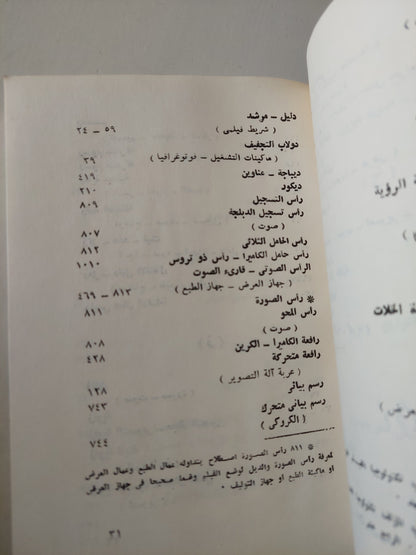 دليل – مرشد
( شريط فيلمى ) ٥٩ – ٢٤
دولاب التجفيف
( ماكينات التشغيل – فوتوغرافيا ) ٣٩
ديباجة – عناوين ٤١٩
ديكود ٢١٠
رأس التسجيل ٨٠٩
رأس تسجيل الدبلجة
( صوت ) ٨٠٧
رأس الحامل الثلاثى ٨١٢
رأس حامل الكاميرا – رأس ذو تروس ١٠١٠
الرأس الصوتى – قارىء الصوت
( جهاز العرض – جهاز الطبع ) ٨١٣ – ٤٦٩
* رأس الصورة ٨١١
رأس المحو
( صوت )
رافعة الكاميرا – الكرين ٨٠٨
رافعة متحركة ٤٢٨
( عربة آلة التصوير )
رسم بيانى ١٢٨
رسم بيانى متحرك ٧٤٣
( الكروكى )
٧٤٤
* ٨١١ رأس الصورة اصطلاح يتداوله عمال الطبع وعمال العرض
لمعرفة رأس الصورة والذيل لوضع الفيلم وضعا صحيحا فى جهاز العرض
او ماكينة الطبع او جهاز التوليف .
٣١
ة الرؤية